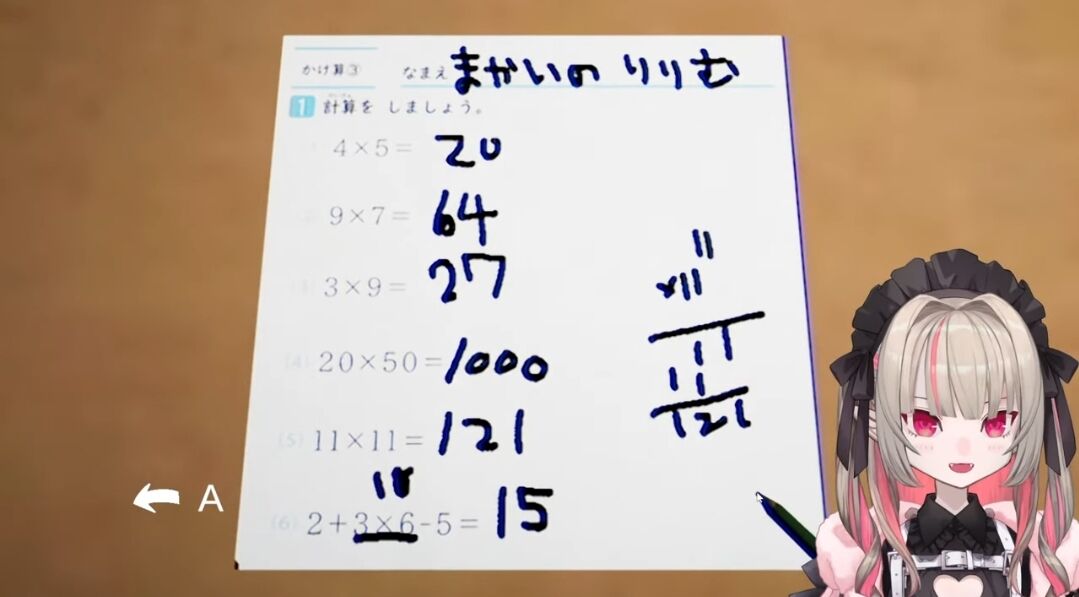 かけ算③ なまえ まかいの りりむ
1 計算を しましょう。
4×5= 20
9×7= 64
3×9= 27
(4) 20×50= 1000
(5) 11×11= 121
(6) 2+3×6-5= 15
18
11
×11
11
11
121
A